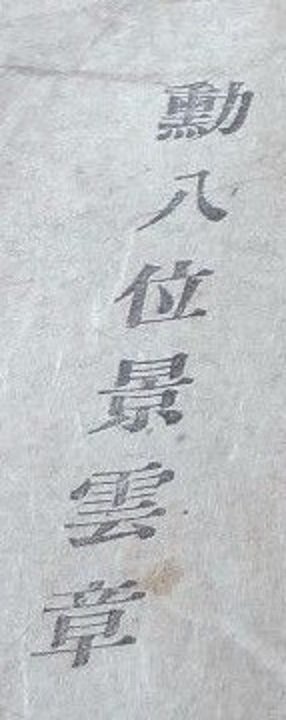 勳八位景雲章